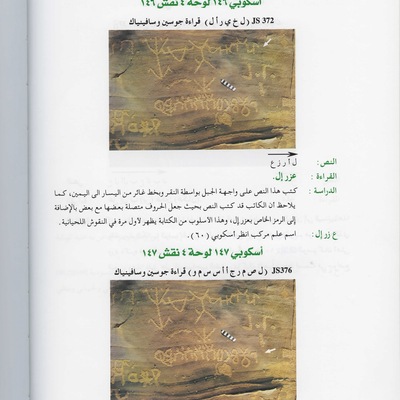 أسكوبي ١٤٦ لوحة ٤ نقش ١٤٦
JS 372 ( ل خ ي ر أ ل ) قراءة جوسين وسافينياك
النص: ل أ ر ز ع
القراءة : عزر إل.
الدراسة : كتب هذا النص على واجهة الجبل بواسطة النقر وبخط غائر من اليسار الى اليمين، كما
يلاحظ ان الكاتب قد كتب النص بحيث جعل الحروف متصلة بعضها مع بعض بالإضافة
إلى الرمز الخاص بعزر إل، وهذا الاسلوب من الكتابة يظهر لاول مرة في النقوش اللحيانية.
ع زر إل: اسم علم مركب انظر أسكوبي (٦٠).
أسكوبي ١٤٧ لوحة ٤ نقش ١٤٧
JS376 (ل ص م ر ج أ أ س س م و) قراءة جوسين وسافينياك